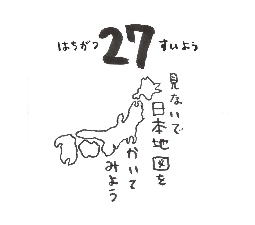 はちがつ 27 すいよう
見ないで
日本地図を
かいて
みよう